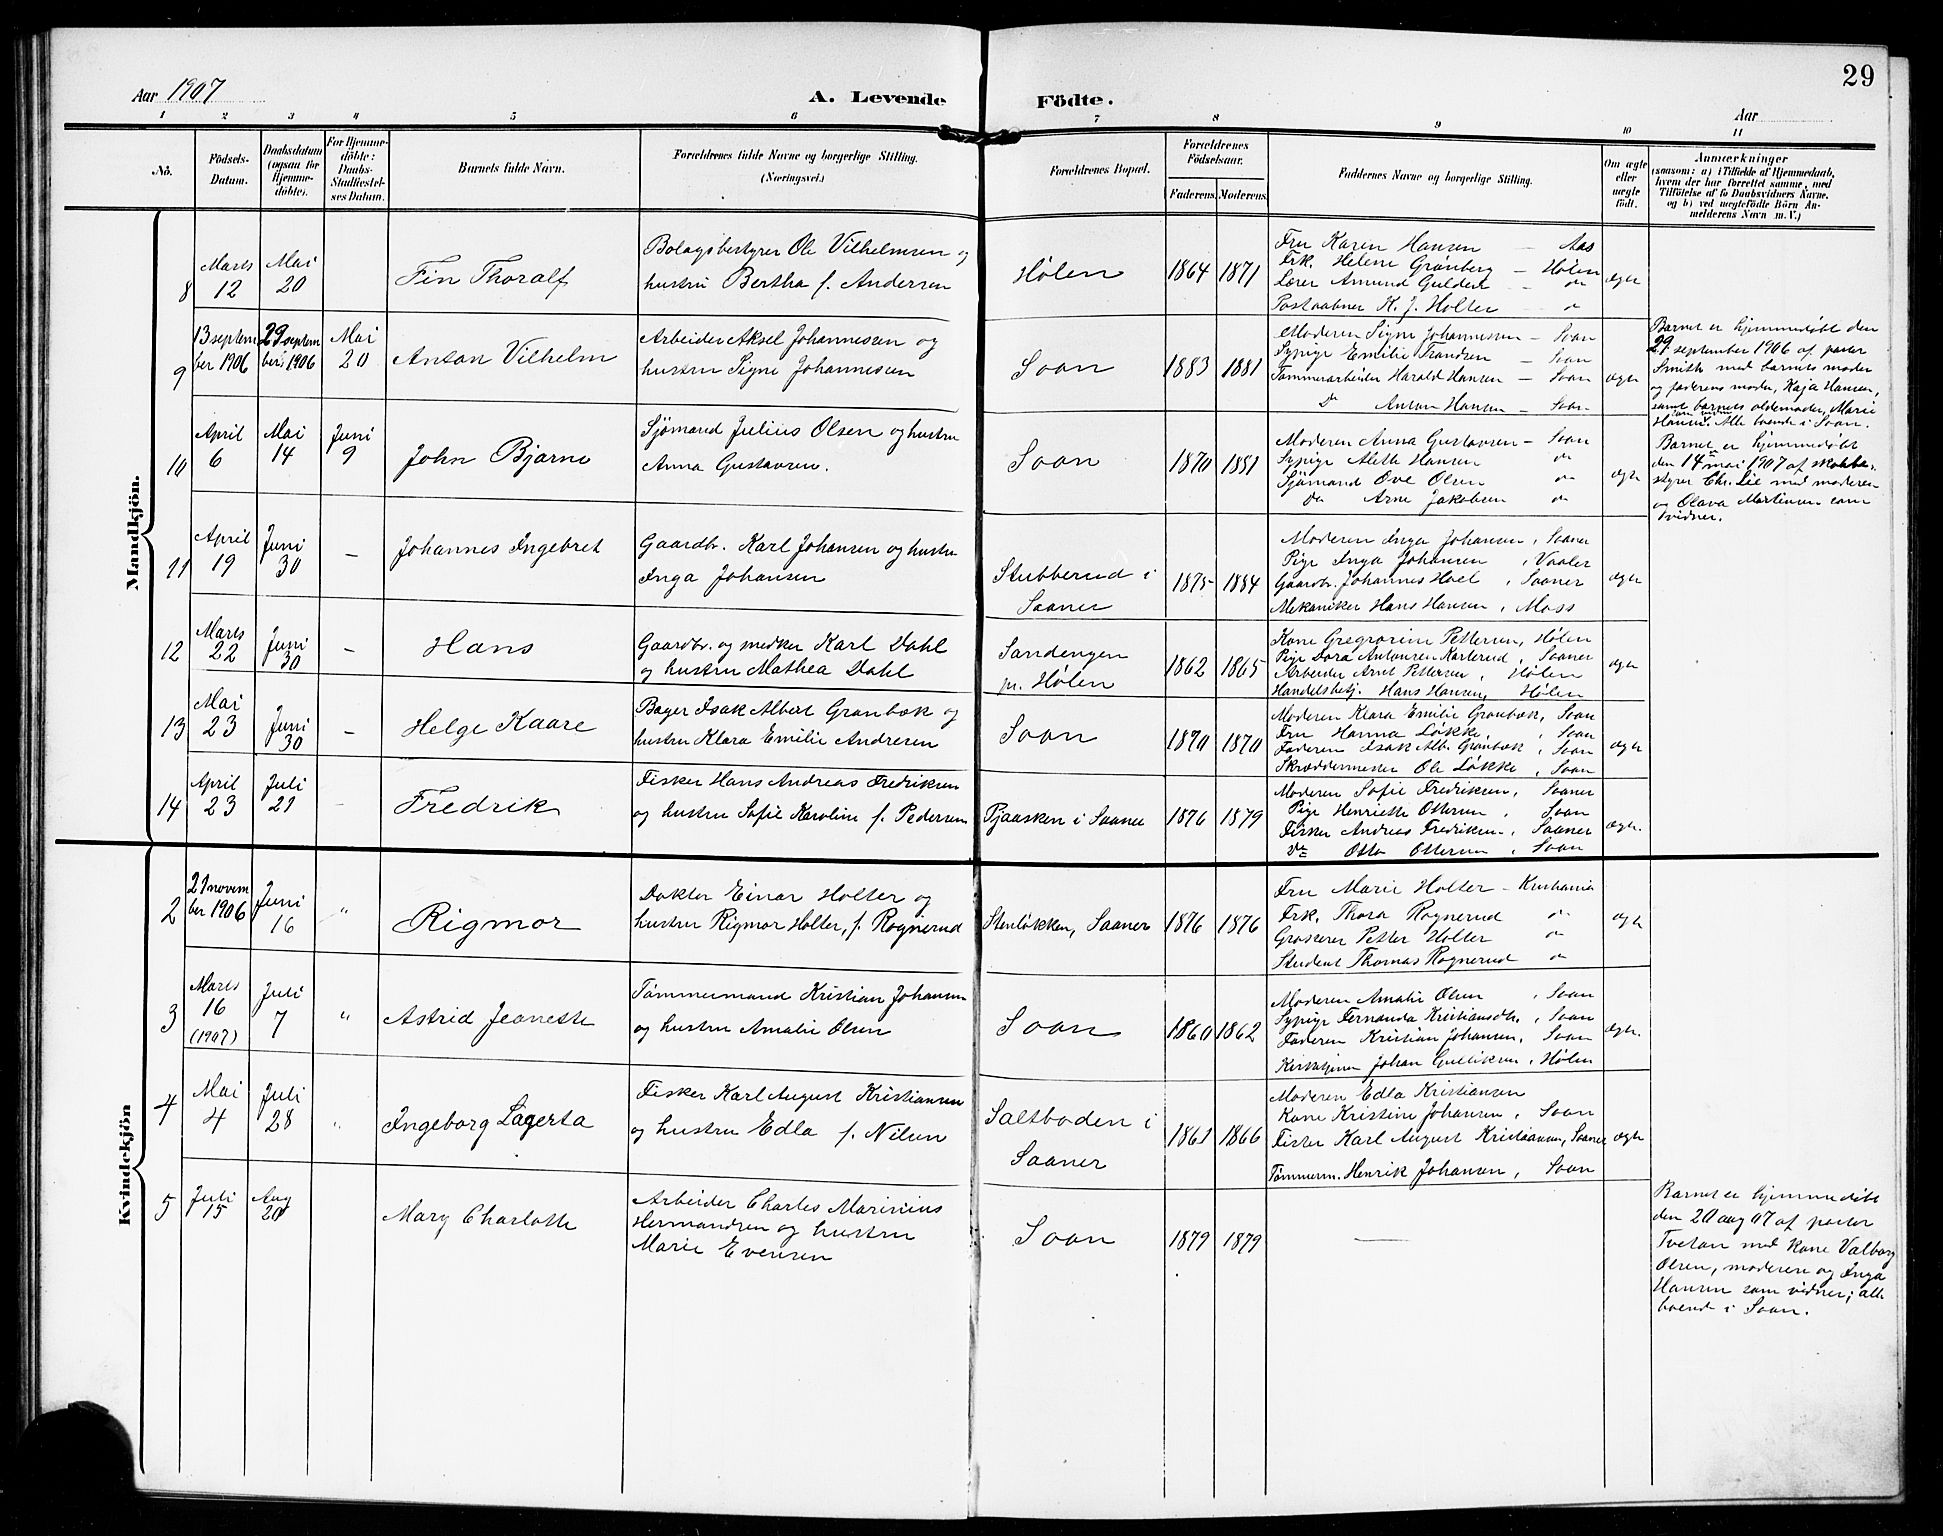 29
Aar 1907
A. Levende Födte.
Aar
1 2 3 4 5 6 7 8 9 10 11
No.
Födsels-Datum.
Daabsdatum (ogsaa for Hjemmedöbte).
For Hjemmedöbte: Daabs-Stadfæstelses Datum.
Barnets fulde Navn.
Forældrenes fulde Navne og borgerlige Stilling. (Næringsvei.)
Forældrenes Bopæl.
Forældrenes Födselsaar.
Faderens. Moderens.
Faddernes Navne og borgerlige Stilling.
Om ægte eller uægte födt.
Anmærkninger
(saasom: a) i Tilfælde af Hjemmedaab, hvem der har forrettet samme, med Tilföielse af to Daabsvidners Navne, og b) ved uægtefödte Börn Anmelderens Navn m. V.)
Mandkjön.
8
Marts 12
Mai 20
Fin Thoralf
Bolagsbestyrer Ole Vilhelmsen og
hustru Bertha f. Andersen
Hølen
1864 1871
Fru Karen Hansen — Aas
Frk. Helene Grønberg — Hølen
Lærer Amund Gulden — do
Postaabner K. J. Holter — do
ægte
9
13 september 1906
29 september 1906
Mai 20
Anton Vilhelm
Arbeider Aksel Johannessen og
hustru Signe Johannesen
Soon
1883 1881
Moderen Signe Johannessen — Soon
Sypige Emilie Frandsen — Soon
Tømmerarbeider Harald Hansen — Soon
Do Anton Hansen — Soon
ægte
Barnet er hjemmedøbt den
29 september 1906 af pastor
Smith med barnets moder
og faderens moder, Kaja Hansen,
samt barnets oldemoder, Marie
Hansen som vidner. Alle boende i Soon.
10
April 6
Mai 14
Juni 9
John Bjarne
Sjømand Julius Olsen og hustru
Anna Gustavsen.
Soon
1870 1881
Moderen Anna Gustavsen — Soon
Sypige Aleth Hansen do
Sjømand Ove Olsen do
Do Arne Jakobsen do
ægte
Barnet er hjemmedøbt
den 14 mai 1907 af skolebe-
styrer Chr. Lie med moderen
og Olava Martinsen som
vidner.
11
April 19
Juni 30
—
Johannes Ingebret
Gaardbr. Karl Johansen og hustru
Inga Johansen
Stubberud i
Saaner
1875 1884
Moderen Inga Johansen, Saaner
Pige Inga Johansen, Vaaler
Gaardbr. Johannes Hoel, Saaner
Mekaniker Hans Hansen, Moss
ægte
12
Marts 22
Juni 30
—
Hans
Gaardbr. og Karl Dahl
og hustru Mathea Dahl
Sandengen
pr. Hølen
1862 1865
Kone Gregorine Pettersen, Hølen
Pige Dora Antonsen Karterud, Saaner
Arbeider Arnt Pettersen, Hølen
Handelsbetj. Hans Hansen, Hølen
ægte
13
Mai 23
Juni 30
—
Helge Kaare
Bager Isak Albert Grønbæk og
hustru Klara Emilie Andresen
Soon
1870 1870
Moderen Klara Emilie Grønbæk, Soon
Fru Hanna Løkke, Soon
Faderen Isak Alb. Grønbæk, Soon
Skræddermester Ole Løkke, Soon
ægte
14
April 23
Juli 21
Fredrik
Fisker Hans Andreas Fredriksen
og hustru Sofie Karoline f. Pedersen
Pjaasken i Saaner
1876 1879
Moderen Sofie Fredriksen, Saaner
Pige Henriette Ottersen, Soon
Fisker Andreas Fredriksen, Saaner
Do Otto Ottersen, Soon
ægte.
Kvindekjön
2
21 november 1906
Juni 16
"
Rigmor
Doktor Einar Holter og
hustru Rigmor Holter, f. Rognerud
Stenløkken, Saaner
1876 1876
Fru Marie Holter — Kristiania
Frk. Thora Rognerud do
Grosserer Petter Holter do
Student Thomas Rognerud do
ægte
3
Marts 16 (1907)
Juli 7
"
Astrid Jeanette
Tømmermand Kristian Johansen
og hustru Amalie Olsen
Soon
1860 1862
Moderen Amalie Olsen, Soon
Sypige Fernanda Kristiansdtr., Soon
Faderen Kristian Johansen, Soon
Kirketjener Johan Gulliksen, Hølen
ægte.
4
Mai 4
Juli 28
"
Ingeborg Lagerta
Fisker Karl August Kristiansen
og hustru Edla f. Nilsen
Saltboden i
Saaner
1861 1866
Moderen Edla Kristiansen
Kone Kristine Johansen, Soon
Fisker Karl August Kristiansen, Saaner
Tømmerm. Henrik Johansen, Soon
ægte
5
Juli 15
Aug 20
Mary Charlotte
Arbeider Charles Marinius
Hermandsen og hustru
Marie Evensen
Soon
1879 1879
—
Barnet er hjemmedøbt
den 20 aug 07 af pastor
Tvetan med Kone Valborg
Olsen, moderen og Inga
Hansen som vidner; alle
boende i Soon.